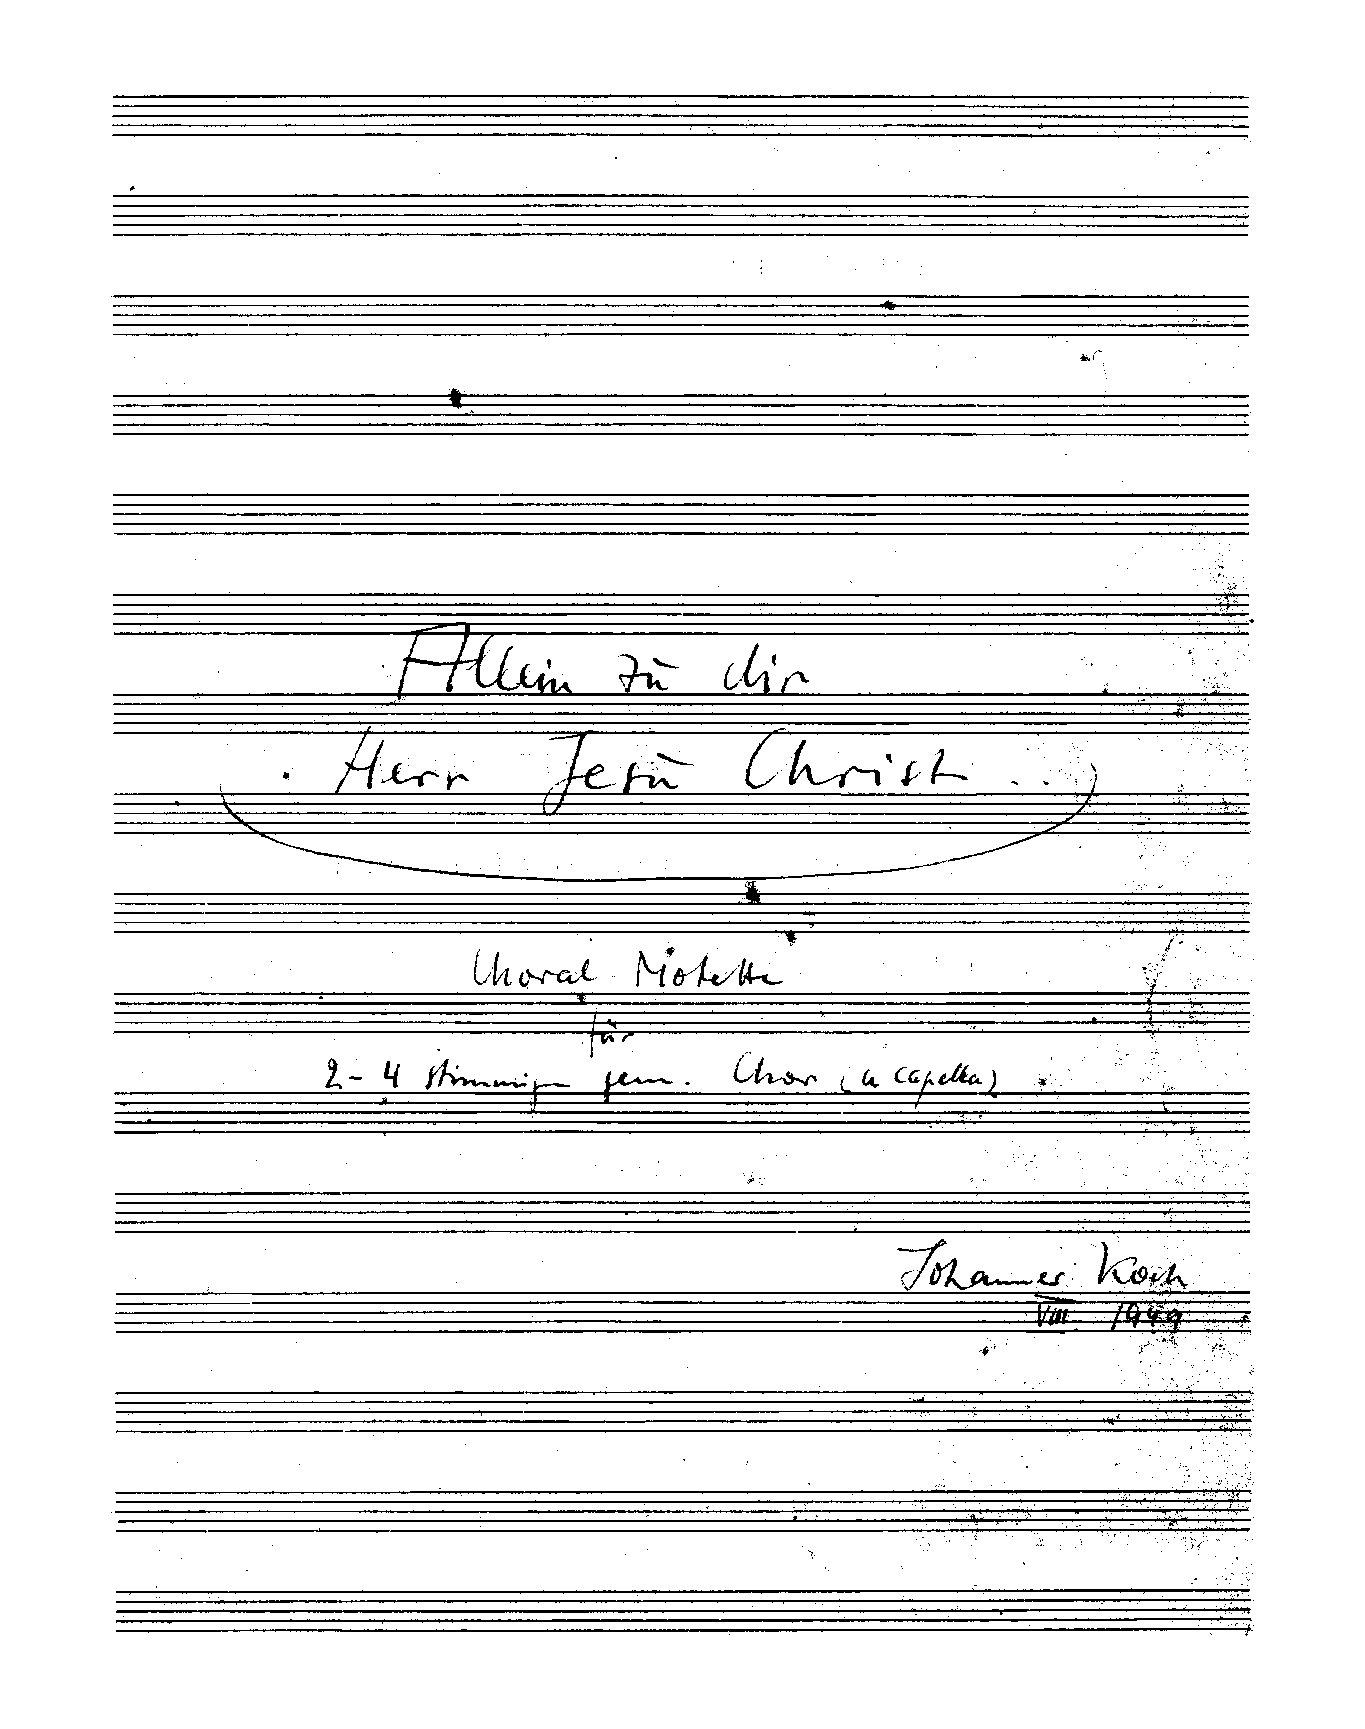 Allein zu dir
. Herr Jesu Christ . .
Choral Motette
für
2-4 stimmigen gem. Chor (a capella)
Johannes Koch
VIII 1949